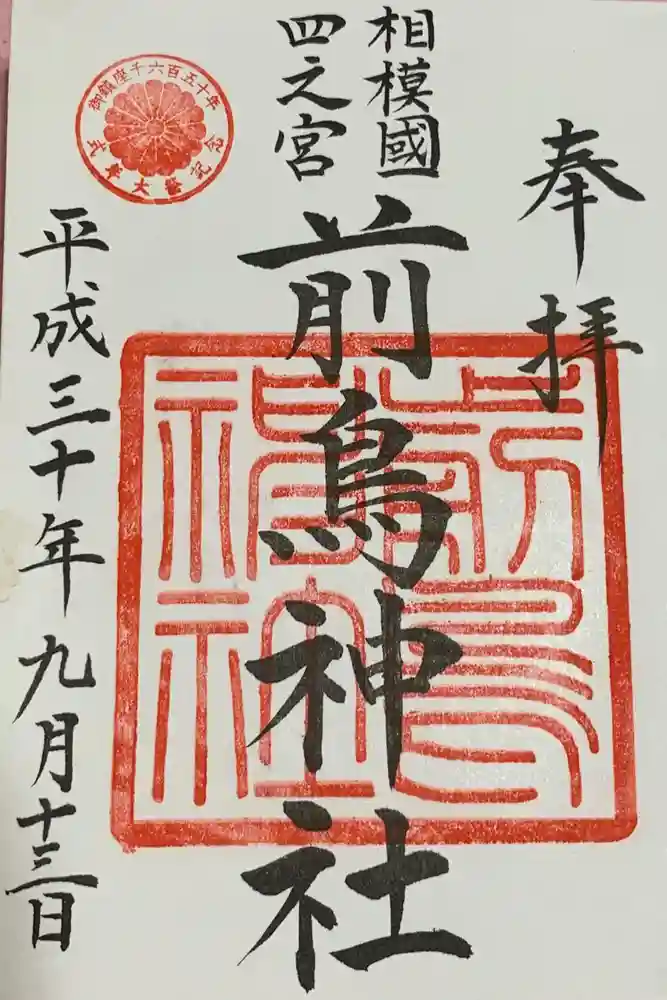 奉拝
相模國
四之宮
前鳥神社
平成三十年九月十三日
御鎮座千六百五十年
式年大祭記念
前鳥神社